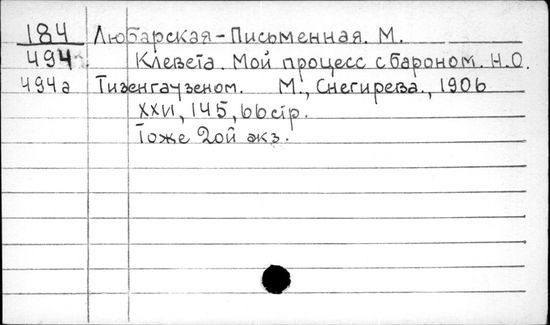 184 Любарская-Письменная. М.
494 Клевета. Мой процесс с бароном. Н.О.
494а Тизенгаузеном. М., Снегирева., 1906
XXVI, 145, 66 стр.
Тоже 2ой экз.